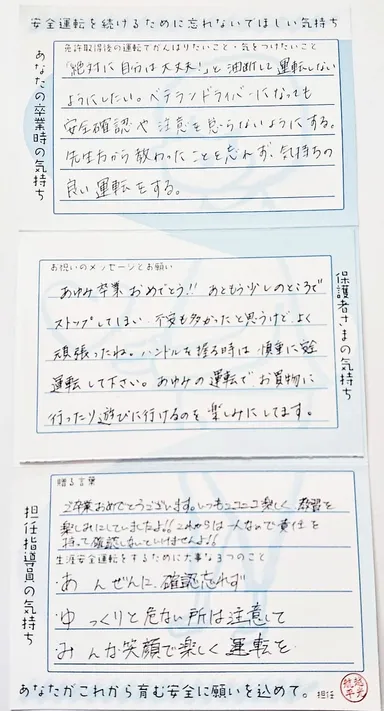 安全運転を続けるために忘れないでほしい気持ち
あなたの卒業時の気持ち
免許取得後の運転でがんばりたいこと・気をつけたいこと
「絶対に自分は大丈夫!」と油断して運転しない
ようにしたい。ベテランドライバーになっても
安全確認や注意を怠らないようにする。
先生方から教わったことを忘れず、気持ちの
良い運転をする。
保護者さまの気持ち
お祝いのメッセージとお願い
あゆみ卒業おめでとう!! あともう少しのところで
ストップしてしまい、不安も多かったと思うけど、よく
頑張ったね。ハンドルを握る時は慎重に安全
運転して下さい。あゆみの運転で、お買物に
行ったり遊びに行けるのを楽しみにしてます。
担任指導員の気持ち
贈る言葉
ご卒業おめでとうございます。いつもニコニコ楽しく教習を
楽しみにしていましたよ!! これからは一人なので責任を
持って確認しないといけませんよ!!
生涯安全運転をするために大事な3つのこと
・あ んぜんに、確認忘れず
・ゆ っくりと危ない所は注意して
・み んな笑顔で楽しく運転を
あなたがこれから育む安全に願いを込めて。 担任